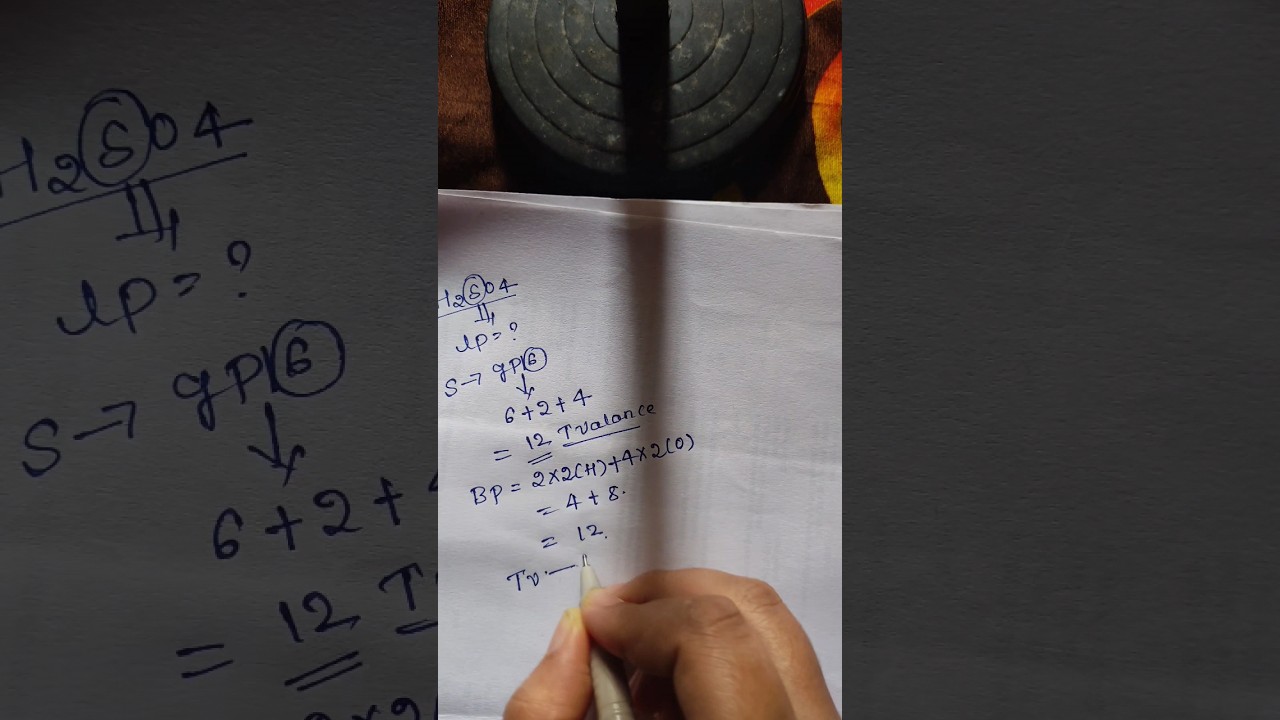 H2SO4
lp = ?
S → gp 6
6+2+4
= 12 Tvalance
BP = 2×2(H)+4×2(O)
= 4 + 8.
= 12.
Tv. —